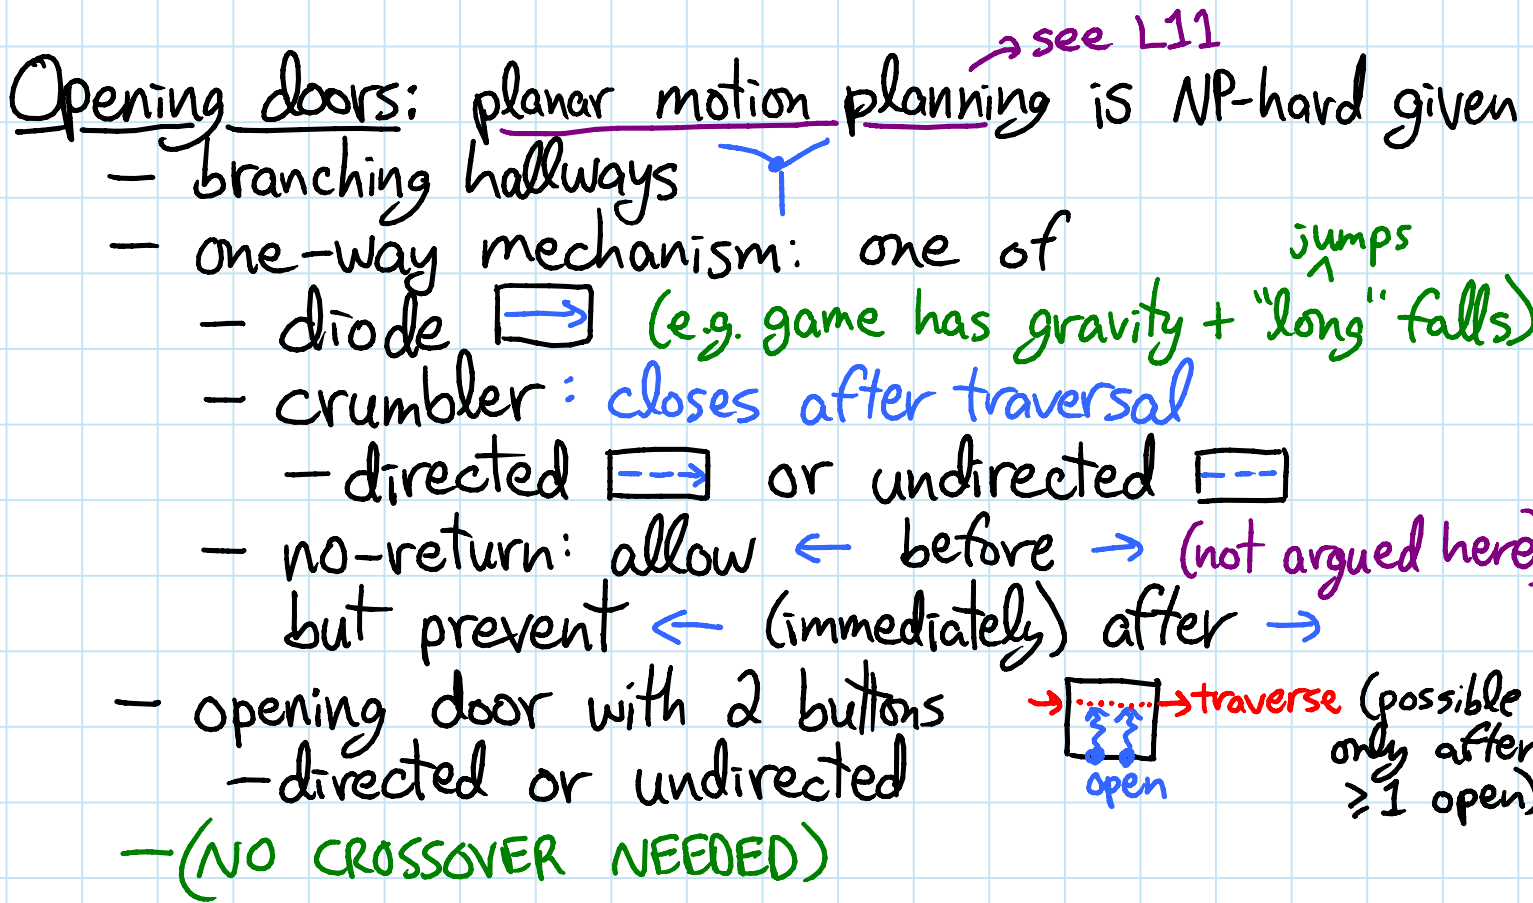 → see L11
Opening doors: planar motion planning is NP-hard given
– branching hallways
– one-way mechanism: one of
jumps
– diode → (e.g. game has gravity + "long ^" falls)
– crumbler: closes after traversal
– directed --→ or undirected ---
– no-return: allow ← before → (not argued here)
but prevent ← (immediately) after →
– opening door with 2 buttons → → traverse (possible
only after
– directed or undirected open ≥ 1 open)
– (NO CROSSOVER NEEDED)